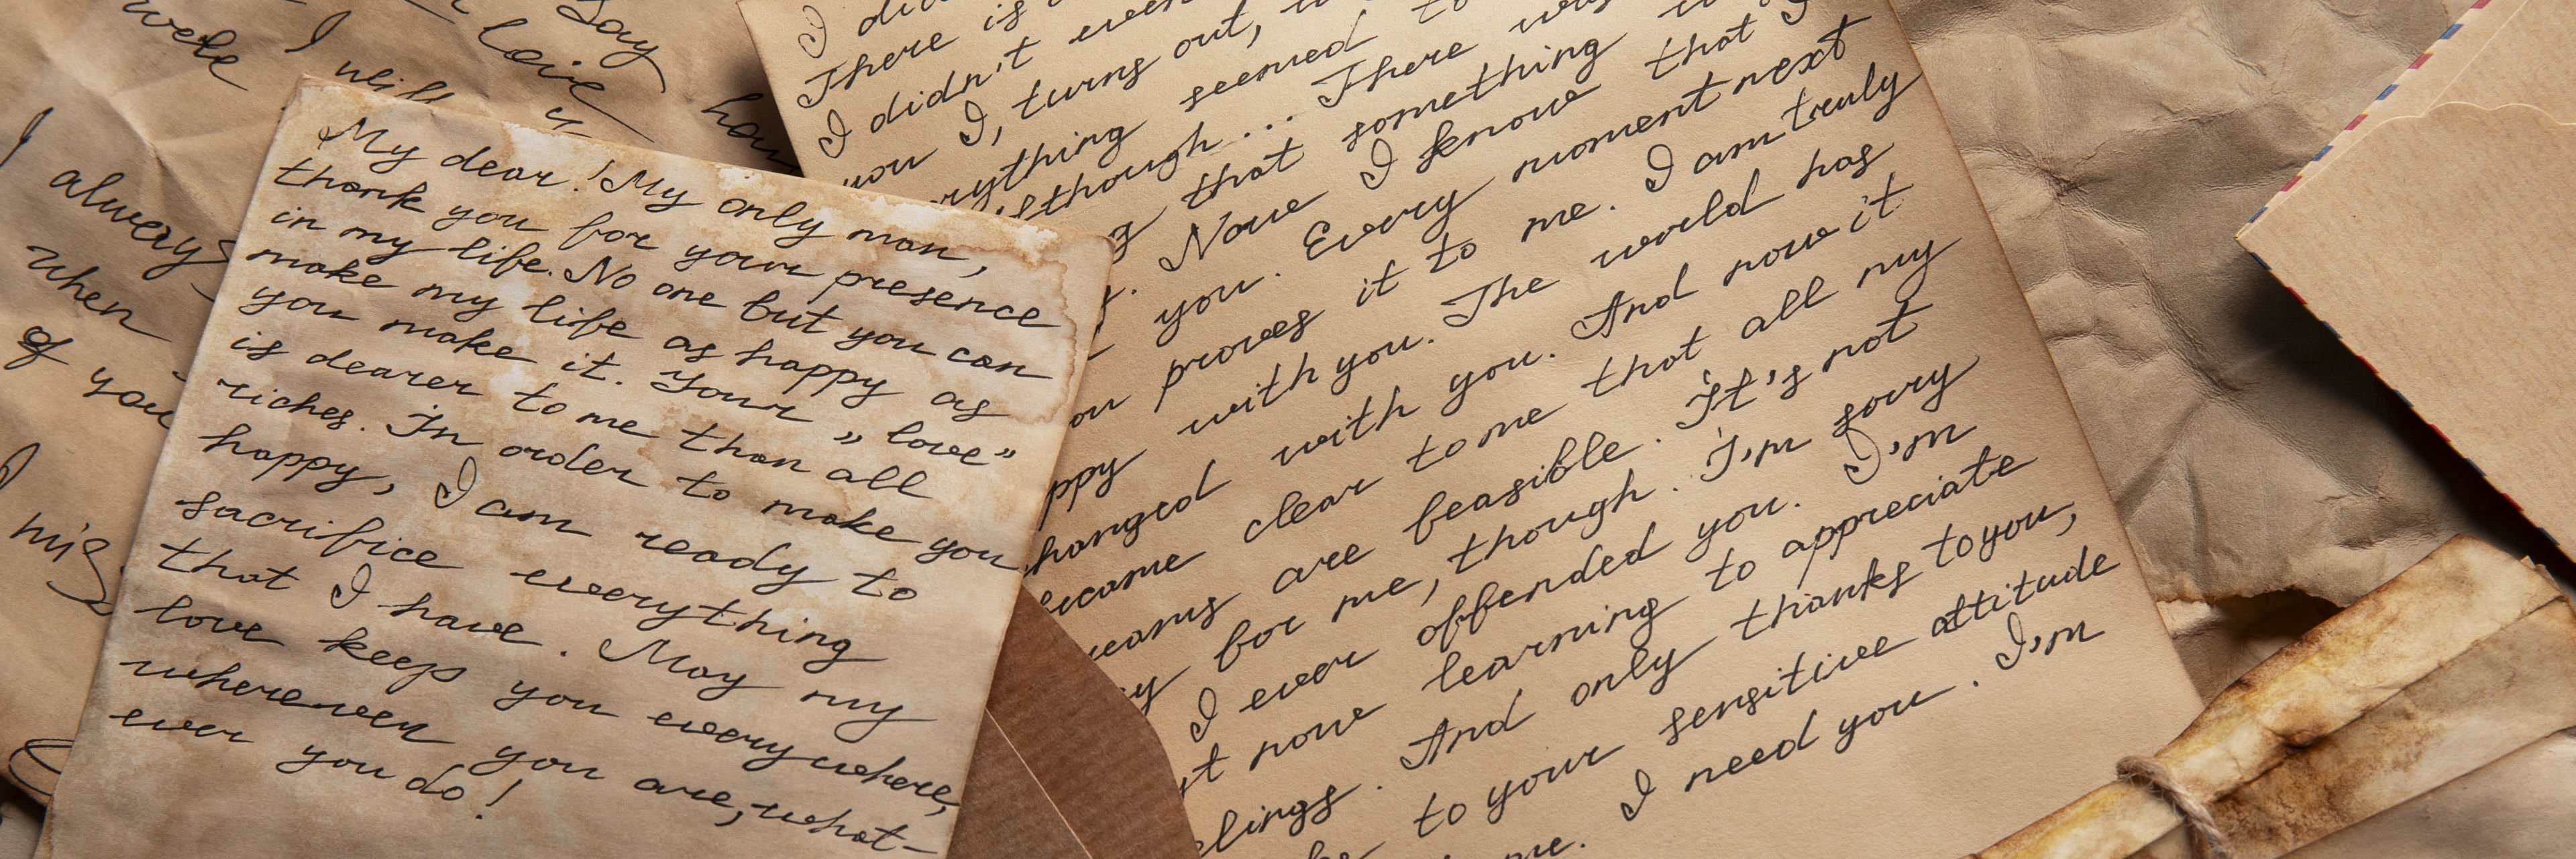 well
I will
say
love
I always
when
of you
I
mis
My dear! My only man,
thank you for your presence
in my life. No one but you can
make my life as happy as
you make it. Your „love”
is dearer to me than all
riches. In order to make you
happy, I am ready to
sacrifice everything
that I have. May my
love keep you everywhere,
wherewer you are, what-
ever you do!
There is
I didn't even
you I, turns out,
rything seemed to
although... There was
that something
Now I know that
you. Every moment next
ou proves it to me. I am truly
ppy with you. The world has
hanged with you. And now it
ecame clear to me that all my
reams are feasible. It's not
y for me, though. I'm sorry
I ever offended you. I'm
st now learning to appreciate
elings. And only thanks to you,
to your sensitive attitude
me. I need you. I'm